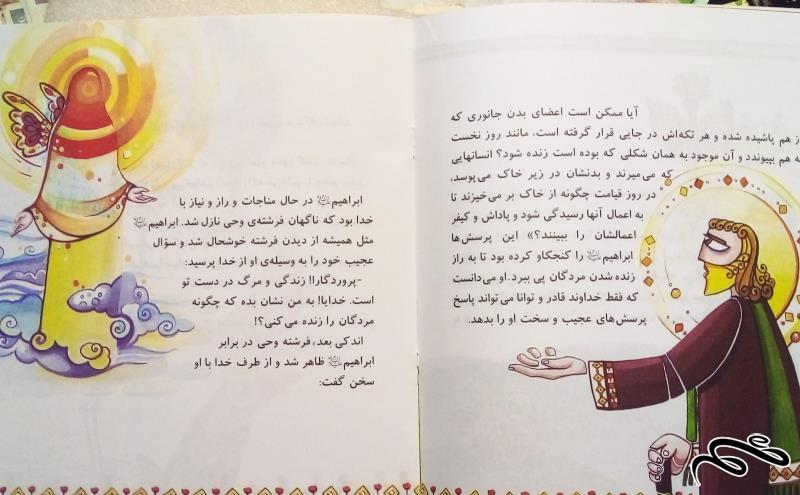 آیا ممکن است اعضای بدن جانوری که
از هم پاشیده شده و هر تکه‌اش در جایی قرار گرفته است، مانند روز نخست
به هم بپیوندد و آن موجود به همان شکلی که بوده است زنده شود؟ انسانهایی
که می‌میرند و بدنشان در زیر خاک می‌پوسد،
در روز قیامت چگونه از خاک بر می‌خیزند تا
به اعمال آنها رسیدگی شود و پاداش و کیفر
اعمالشان را ببینند؟» این پرسش‌ها
ابراهیم را کنجکاو کرده بود تا به راز
زنده شدن مردگان پی ببرد. او می‌دانست
که فقط خداوند قادر و توانا می‌تواند پاسخ
پرسش‌های عجیب و سخت او را بدهد.
ابراهیم در حال مناجات و راز و نیاز با
خدا بود که ناگهان فرشته‌ی وحی نازل شد. ابراهیم
مثل همیشه از دیدن فرشته خوشحال شد و سؤال
عجیب خود را به وسیله‌ی او از خدا پرسید:
-پروردگارا! زندگی و مرگ در دست تو
است. خدایا! به من نشان بده که چگونه
مردگان را زنده می‌کنی؟!
اندکی بعد، فرشته وحی در برابر
ابراهیم ظاهر شد و از طرف خدا با او
سخن گفت: